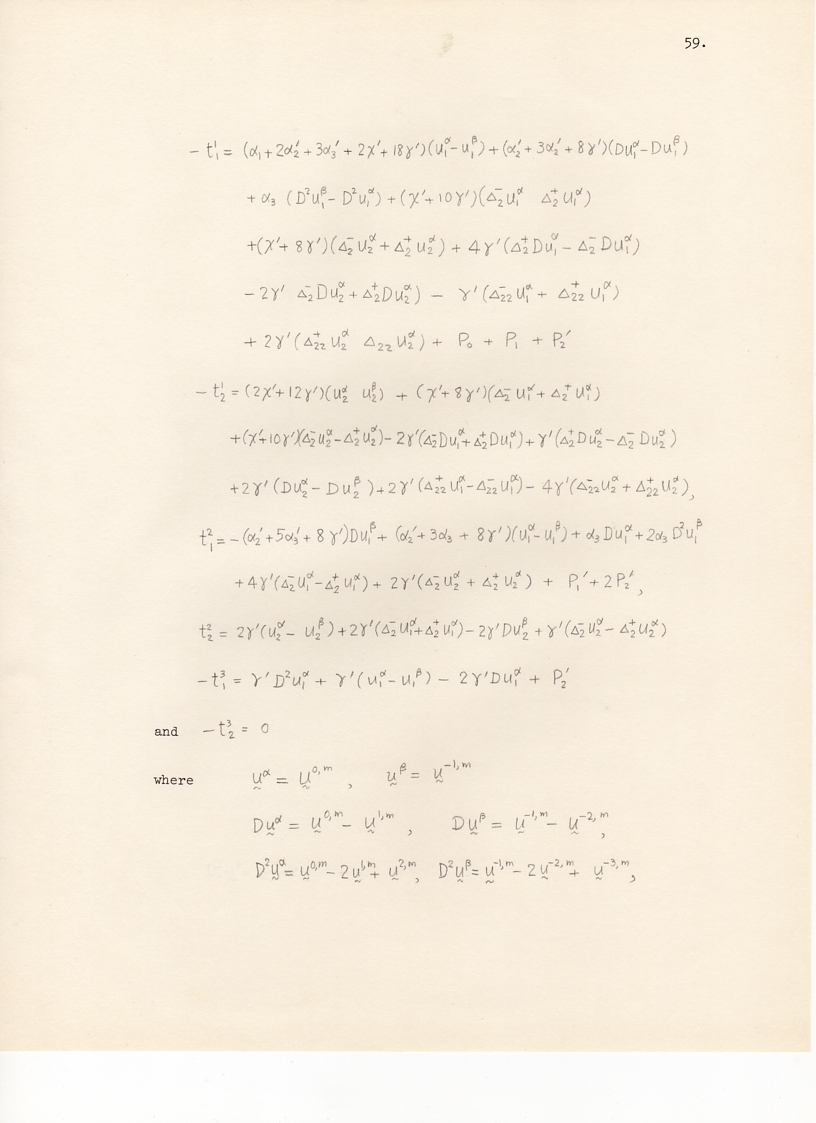 59.
- t₁¹ = (α₁ + 2α₂′ + 3α₃′ + 2χ′ + 18γ′)(u₁^α - u₁^β) + (α₂′ + 3α₂′ + 8γ′)(Du₁^α - Du₁^β)
+ α₃ (D²u₁^β - D²u₁^α) + (χ′ + 10γ′)(Δ₂⁻ u₁^α Δ₂⁺ u₁^α)
+(χ′ + 8γ′)(Δ₂⁻ u₂^α + Δ₂⁺ u₂^α) + 4γ′(Δ₂⁺ Du₁^α - Δ₂⁻ Du₁^α)
- 2γ′ Δ₂⁻ Du₂^α + Δ₂⁺ Du₂^α) - γ′(Δ₂₂⁻ u₁^α + Δ₂₂⁺ u₁^α)
+ 2γ′(Δ₂₂⁺ u₂^α Δ₂₂ u₂^α) + P₀ + P₁ + P₂′
- t₂¹ = (2χ′ + 12γ′)(u₂^α u₂^β) + (χ′ + 8γ′)(Δ₂⁻ u₁^α + Δ₂⁺ u₁^α)
+(χ′ + 10γ′)(Δ₂⁻ u₂^α - Δ₂⁺ u₂^α) - 2γ′(Δ₂⁻ Du₁^α + Δ₂⁺ Du₁^α) + γ′(Δ₂⁺ Du₂^α - Δ₂⁻ Du₂^α)
+2γ′ (Du₂^α - Du₂^β) + 2γ′(Δ₂₂⁺ u₁^α - Δ₂₂⁻ u₁^α) - 4γ′(Δ₂₂⁻ u₂^α + Δ₂₂⁺ u₂^α),
t₁² = -(α₂′ + 5α₃′ + 8γ′)Du₁^β + (α₂′ + 3α₃ + 8γ′)(u₁^α - u₁^β) + α₃ Du₁^α + 2α₃ D²u₁^β
+ 4γ′(Δ₂⁻ u₁^α - Δ₂⁺ u₁^α) + 2γ′(Δ₂⁻ u₂^α + Δ₂⁺ u₂^α) + P₁′ + 2P₂′,
t₂² = 2γ′(u₂^α - u₂^β) + 2γ′(Δ₂⁻ u₁^α + Δ₂⁺ u₁^α) - 2γ′Du₂^β + γ′(Δ₂⁻ u₂^α - Δ₂⁺ u₂^α)
- t₁³ = γ′D²u₁^α + γ′(u₁^α - u₁^β) - 2γ′Du₁^α + P₂′
and - t₂³ = 0
where u^α = u^{0,m} , u^β = u^{-1,m}
Du^α = u^{0,m} - u^{1,m} , Du^β = u^{-1,m} - u^{-2,m},
D²u^α = u^{0,m} - 2u^{1,m} + u^{2,m}, D²u^β = u^{-1,m} - 2u^{-2,m} + u^{-3,m},